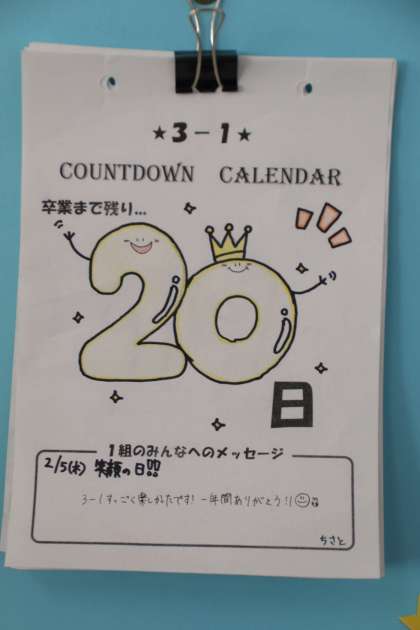 ★3-1★
COUNTDOWN CALENDAR
卒業まで残り...
20
日
1組のみんなへのメッセージ
2/5(木) 笑顔の日!!
3-1すっごく楽しかったです! 一年間ありがとう!!
ちさと